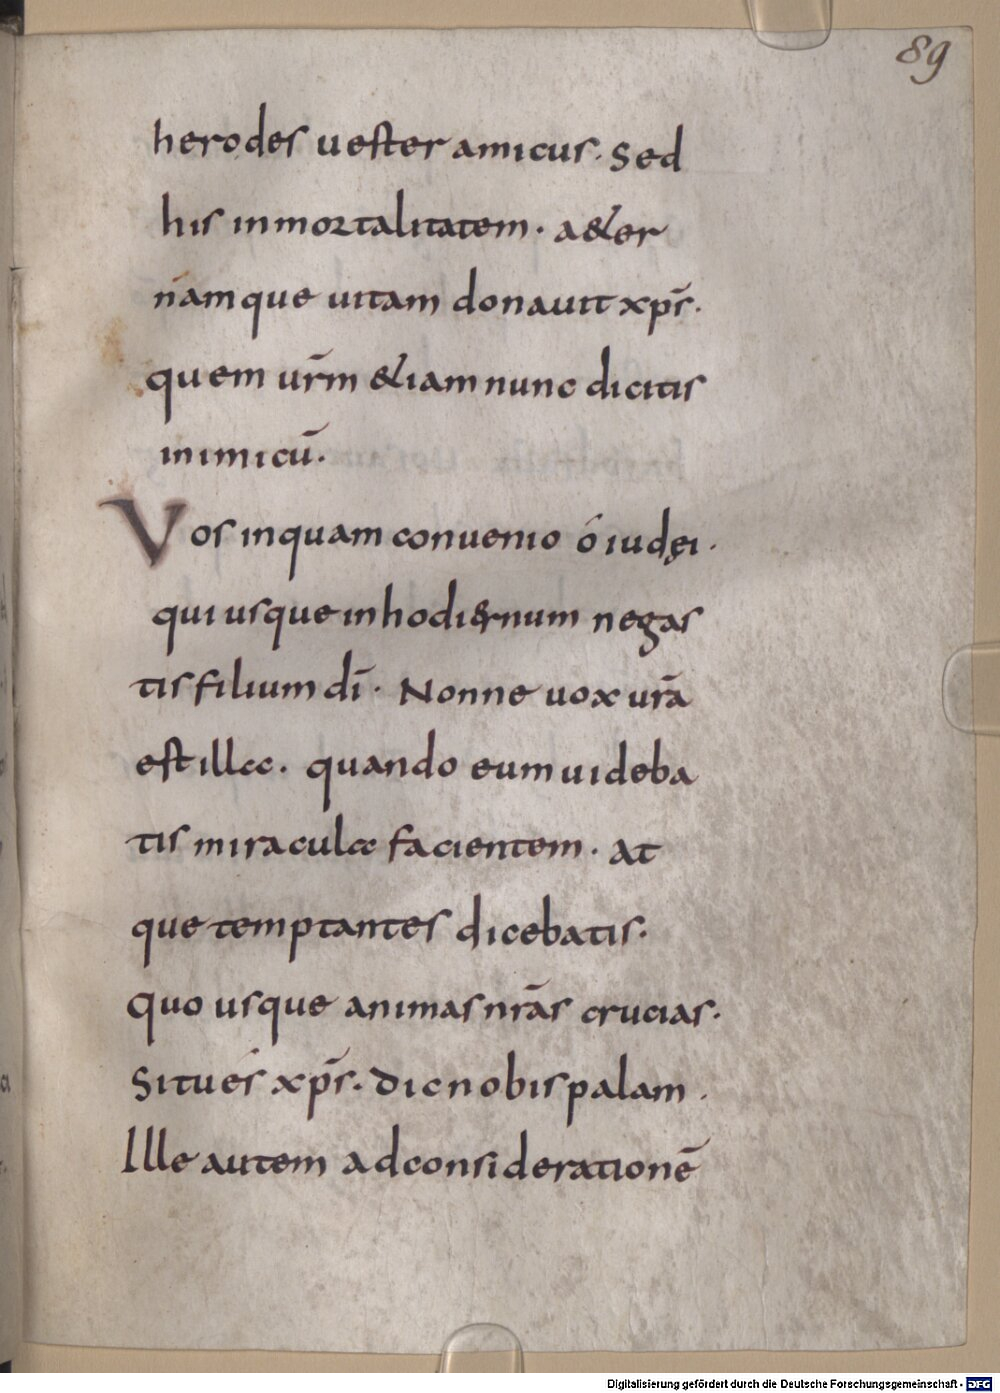 89
herodes uester amicus. Sed
his inmortalitatem. a&er
námque uitam donauit xp̄s.
quem ur̄m &iam nunc dicitis
inimicū.
Vos inquam conuenio ó iudęi.
qui usque in hodi&rnum negas
tis filium dī. Nonne uox ur̄a
est illa. quando eum uideba
tis miracula facientem. at
que temptantes dicebatis.
Quo usque animas nr̄as crucias.
Si tu és xp̄s. dic nobis palam.
Ille autem ad consideratione̅
Digitalisierung gefördert durch die Deutsche Forschungsgemeinschaft - DFG